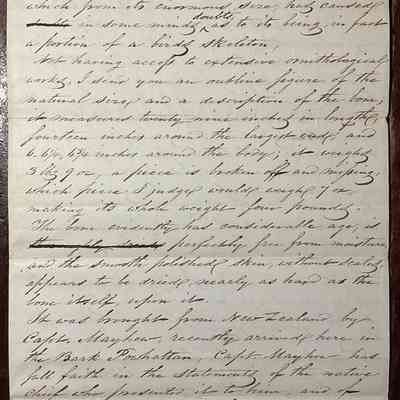 which from its enormous size, had caused
doubts
in some minds, as to its being in fact
a portion of a birds skeleton.
Not having access to extensive ornithological
works, I send you an outline figure of the
natural size, and a description of the bone,
it measures twenty nine inches in length,
fourteen inches around the largest end, and
6. 6¼, 6¾ inches around the body; it weighs
3 lbs 9 oz, a piece is broken off and missing,
which piece I judge would weigh 7 oz.
making its whole weight four pounds.
The bone evidently has considerable age, is
perfectly free from moisture,
and the smooth polished skin, without scales,
appears to be dried nearly as hard as the
bone itself upon it.
It was brought from New Zealand by
Capt. Mayhew, recently arrived here in
the Bark Powhattan, Capt. Mayhew has
full faith in the statements of the native
chief who presented it to him, and of